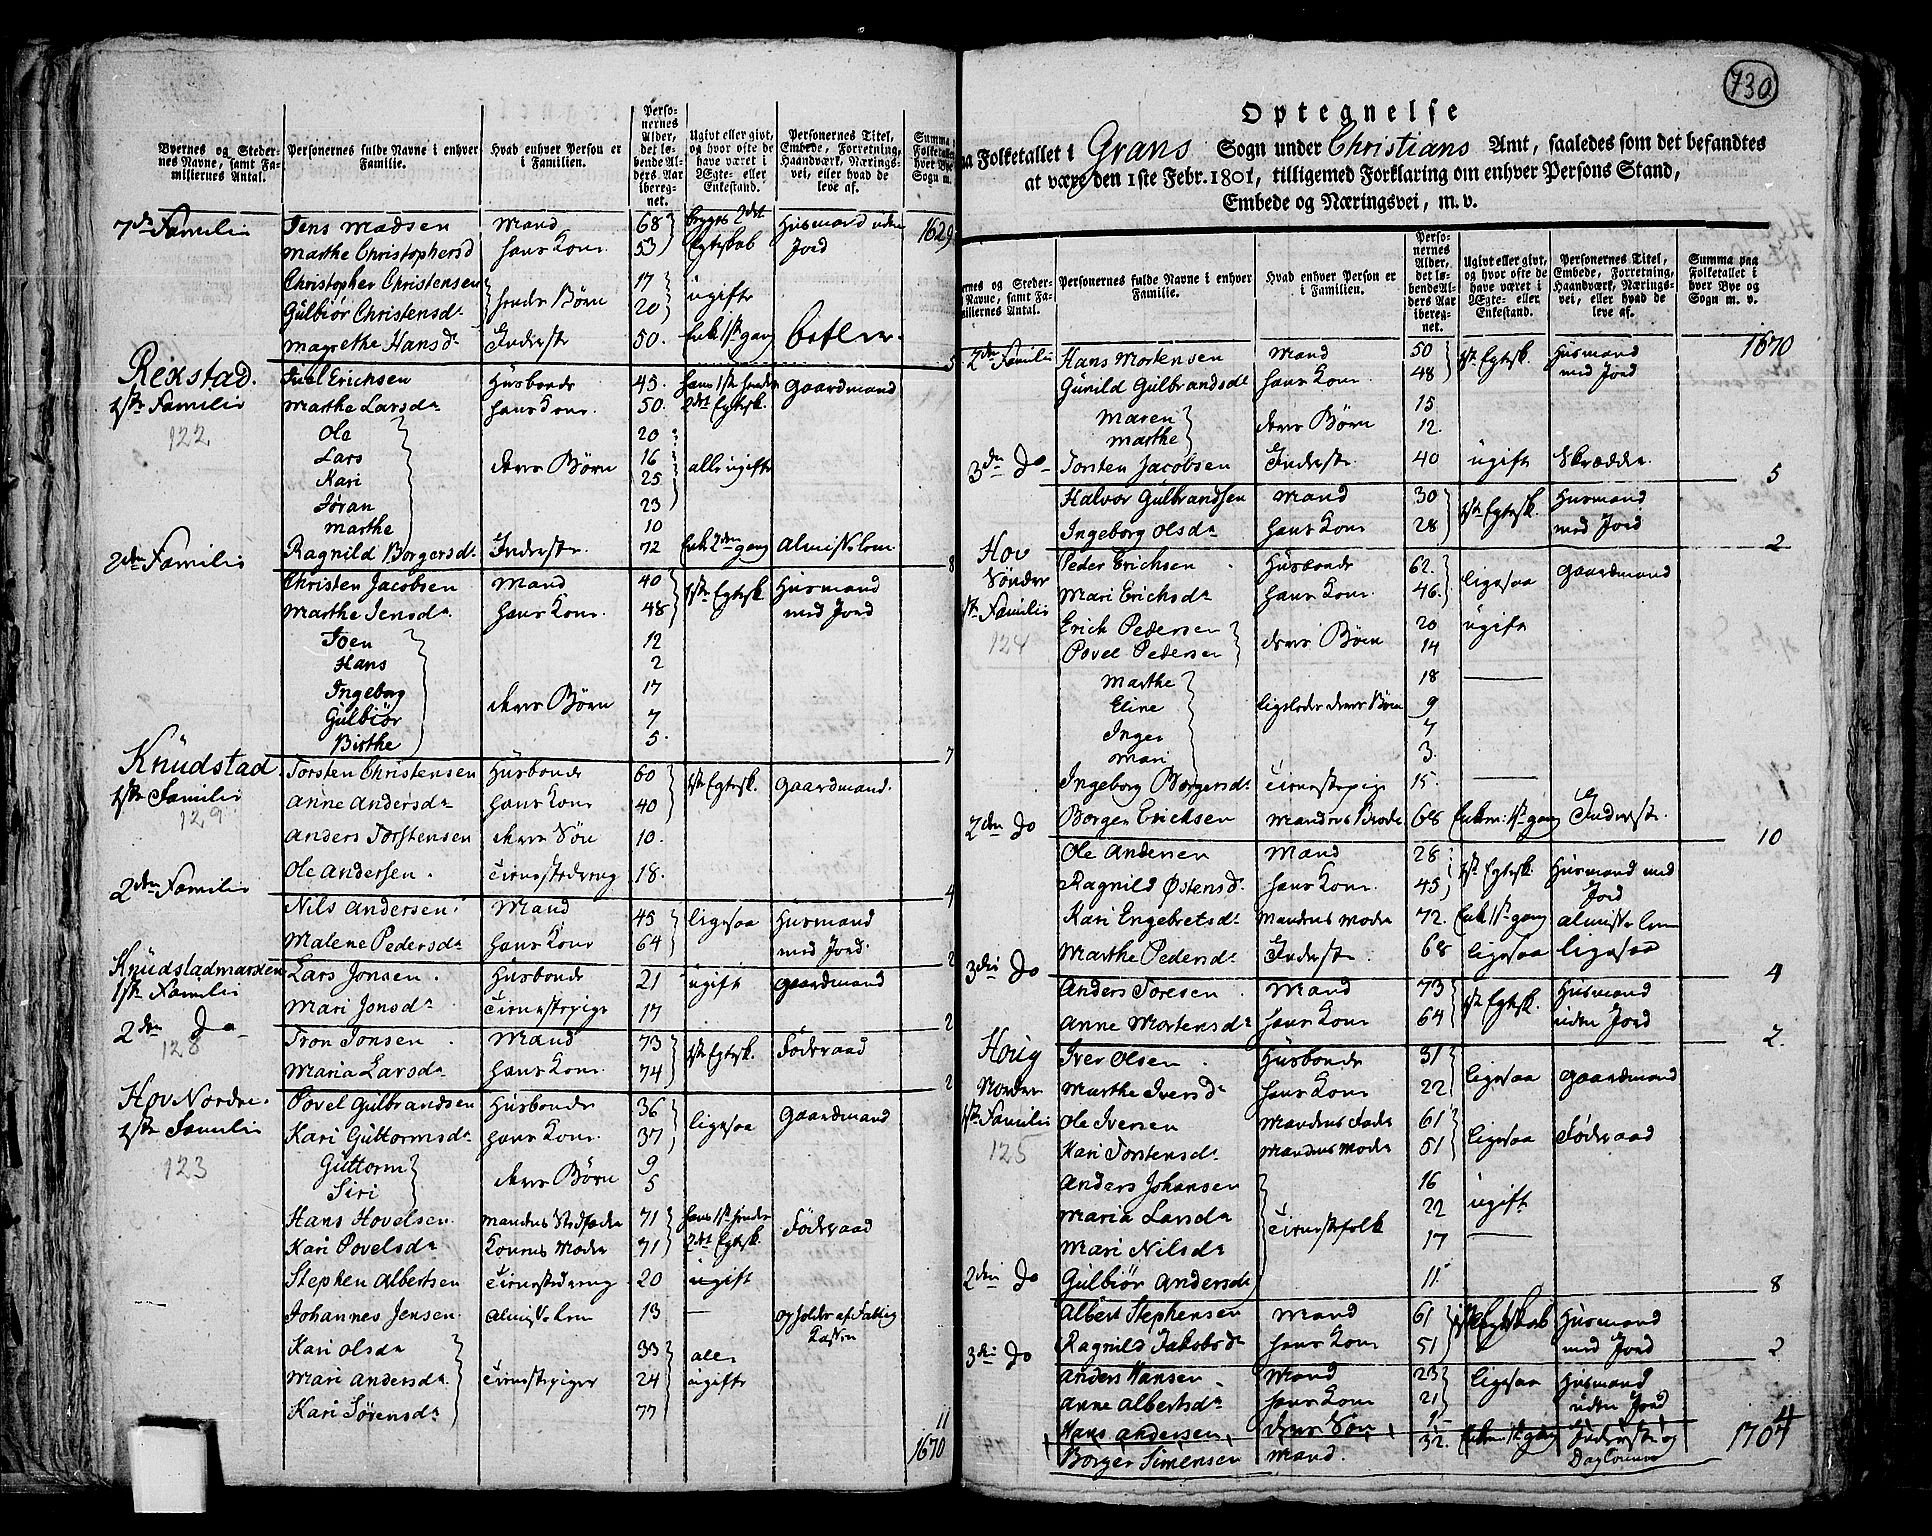 Byernes og Steder-
nes Navne, samt Fa-
miliernes Antal.
Personernes fulde Navne i enhver
Familie.
Hvad enhver Person er
i Familien.
Perso-
nernes
Alder,
det lø-
bende Al-
ders Aar
iberegnet.
Ugivt eller givt,
og hvor ofte de
have været i
Ægte- eller
Enkestand.
Personernes Titel,
Embede, Forretning,
Haandværk, Nærings-
vei, eller hvad de
leve af.
7de Familie Jens Madsen Mand 68 begges 2det Huusmand uden 1629
Marthe Christophersd hans Kone 53 Egteskab Jord
Christopher Christensen 17
hendes Børn ugifte
Gulbiør Christensdr 20
Magrethe Hansdr Inderste 50. Enke 1ste gang betler 5
Rekstad. Juel Erichsen Husbonde 45. hans 1ste hendes Gaardmand
1ste Familie Marthe Larsdr hans Kone. 50. 2det Egtesk.
122 Ole 20
Lars 16
deres Børn alle ugifte
Kari 25
Jøran 23
Marthe 10
Ragnild Borgersdr Inderste. 72 Enke 2den gang Almisselem 8
2den Familie Christen Jacobsen Mand 40 1ste Egtesk. Husmand
Marthe Jensdr. hans Kone. 48 med Jord
Joen 12
Hans 2
Ingeborg 17
deres Børn
Gulbiør 7
Birthe 5. 7
Knudstad Torsten Christensen Husbonde 60 1ste Egtesk. Gaardmand.
1ste Familie Anne Andersdr hans Kone 40
129 Anders Torstensen deres Søn 10.
Ole Andersen. Tienestedreng 18. 4
2den Familie Nils Andersen Mand 45 ligesaa Husmand
Malene Pedersdr hans Kone 64 med Jord. 2
Knudstadmarsten Lars Jonsen. Husbonde 21 ugift Gaardmand
1ste Familie Mari Jonsdr. Tienestepige 17 2
2den Do Tron Jonsen. Mand 73 1ste Egtesk. Føderaad
128 Maria Larsdr. hans Kone 74 2
Hov Nordre. Povel Gulbrandsen Husbonde 36 ligesaa Gaardmand
1ste Familie Kari Guttormsdr. hans Kone. 37
123 Guttorm 9
deres Børn
Siri 5
Hans Hovelsen. Mandens Stedfader 71 hans 1ste hendes Føderaad
Kari Povelsdr Konens Moder 71 2det Egtesk.
Stephen Albertsen Tienestedreng 20 ugift
Johannes Jensen Almisselem 13 — opholdes af Fattig
Kassen
Kari Olsdr 33 alle
Mari Andersdr. Tienestepiger 24 ugifte
Kari Sørensdr 77 11
1670
730
Optegnelse
Folketallet i Grans Sogn under Christians Amt, saaledes som det befandtes
at være den 1ste Febr. 1801, tilligemed Forklaring om enhver Persons Stand,
Embede og Næringsvei, m. v.
Personernes fulde Navne i enhver
Familie.
Hvad enhver Person er
i Familien.
Perso-
nernes
Alder,
det lø-
bende Al-
ders Aar
ibereg-
net.
Ugivt eller givt,
og hvor ofte de
have været i
Ægte- eller
Enkestand.
Personernes Titel,
Embede, Forretning,
Haandværk, Nærings-
vei, eller hvad de
leve af.
Summa paa
Folketallet i
hver Bye og
Sogn m. v.
2den Familie Hans Mortensen Mand 50 1ste Egtesk. Husmand 1670
Gunild Gulbrandsdr hans Kone. 48 med Jord
Maren 15
deres Børn
Marthe 12.
Torsten Jacobsen Inderste. 40 ugift Skrædder. 5
3den Do Halvor Gulbrandsen Mand 30 1ste Egtesk. Husmand
Ingeborg Olsdr hans Kone 28 med Jord 2
Hov Peder Erichsen Husbonde 62. ligesaa Gaardmand
Søndre Mari Erichsdr hans Kone. 46.
1ste Familie Erich Pedersen 20 ugift
deres Børn
124 Povel Pedersen 14
Marthe 18
Eline ligeledes deres Børn 9
Inger 7
Mari 3.
Ingeborg Borgersdr. Tienestepige 15.
Borger Erichsen Mandens Broder 68 Enkem: 1ste gang Inderste. 10
2den Do Ole Andersen Mand 28 1ste Egtesk. Husmand med
Ragnild Østensd. hans Kone. 45 Jord
Kari Engebretsdr Mandens Moder 72. Enke 1ste gang Almisselem
Marthe Pedersdr Inderste. 68 ligesaa ligesaa 4
3die Do Anders Toresen Mand 73 1ste Egtesk. Husmand
Anne Mortensdr hans Kone 64 uden Jord 2.
Houg Iver Olsen. Husbonde 31 ligesaa Gaardmand
Nordre Marthe Iversdr hans Kone 22
1ste Familie Ole Iversen Mandens Fader 61 ligesaa Føderaad
125 Kari Torstensdr Mandens Moder 51
Anders Johansen 16
Maria Larsdr 22 ugift
Tienestefolk
Mari Nilsdr 17
Gulbiør Andersdr 11. 8
2den Do Albert Stephensen Mand 61 1ste Egteskab Husmand
Ragnild Jakobsdr hans Kone 51 med Jord 2
3die Do Anders Hansen Mand 23 ligesaa Husmand
Anne Albertsdr. hans Kone 21 uden Jord
Hans Andersen deres Søn 1 4
Borger Simensen Mand. 32. Enkem: 1ste gang Inderste og 1704
Dagleønner